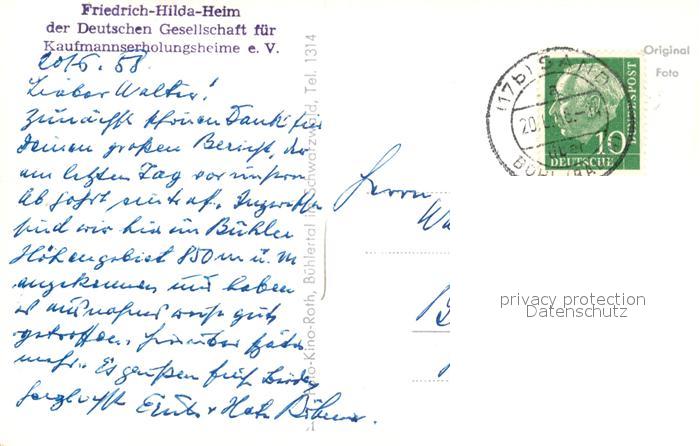 Friedrich-Hilda-Heim
der Deutschen Gesellschaft für
Kaufmannserholungsheime e. V.
20/6. 58.
Lieber Walter!
Zunächst schönen Dank für
Deinen großen Bericht, der
am letzten Tag vor unserer
Abfahrt eintraf. Inzwischen
sind wir hier im Bühler
Höhengebiet 850 m ü. M
angekommen und haben
es ausnahmsweise gut
getroffen. Hierüber später
mehr. Es grüßen Euch beide
herzlichst
Foto-Kino-Roth, Bühlertal im Schwarzwald, Tel. 1314
Herrn
Original
Foto
(17b) SAND
a
20.
BÜHL (BA
10
DEUTSCHE
BUNDESPOST
privacy protection
Datenschutz